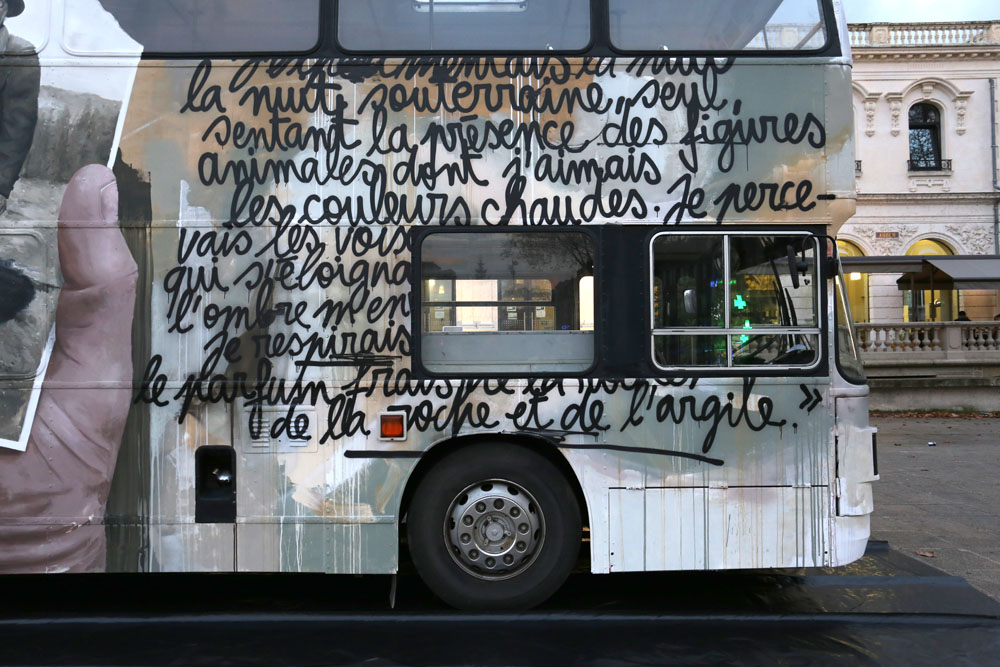 la nuit
la nuit souterraine, seul,
sentant la présence des figures
animales dont j'aimais
les couleurs chaudes. Je perce-
vais les voix
qui s'éloigna
l'ombre m'en
Je respirais
le parfum frais
de la roche et de l'argile. »